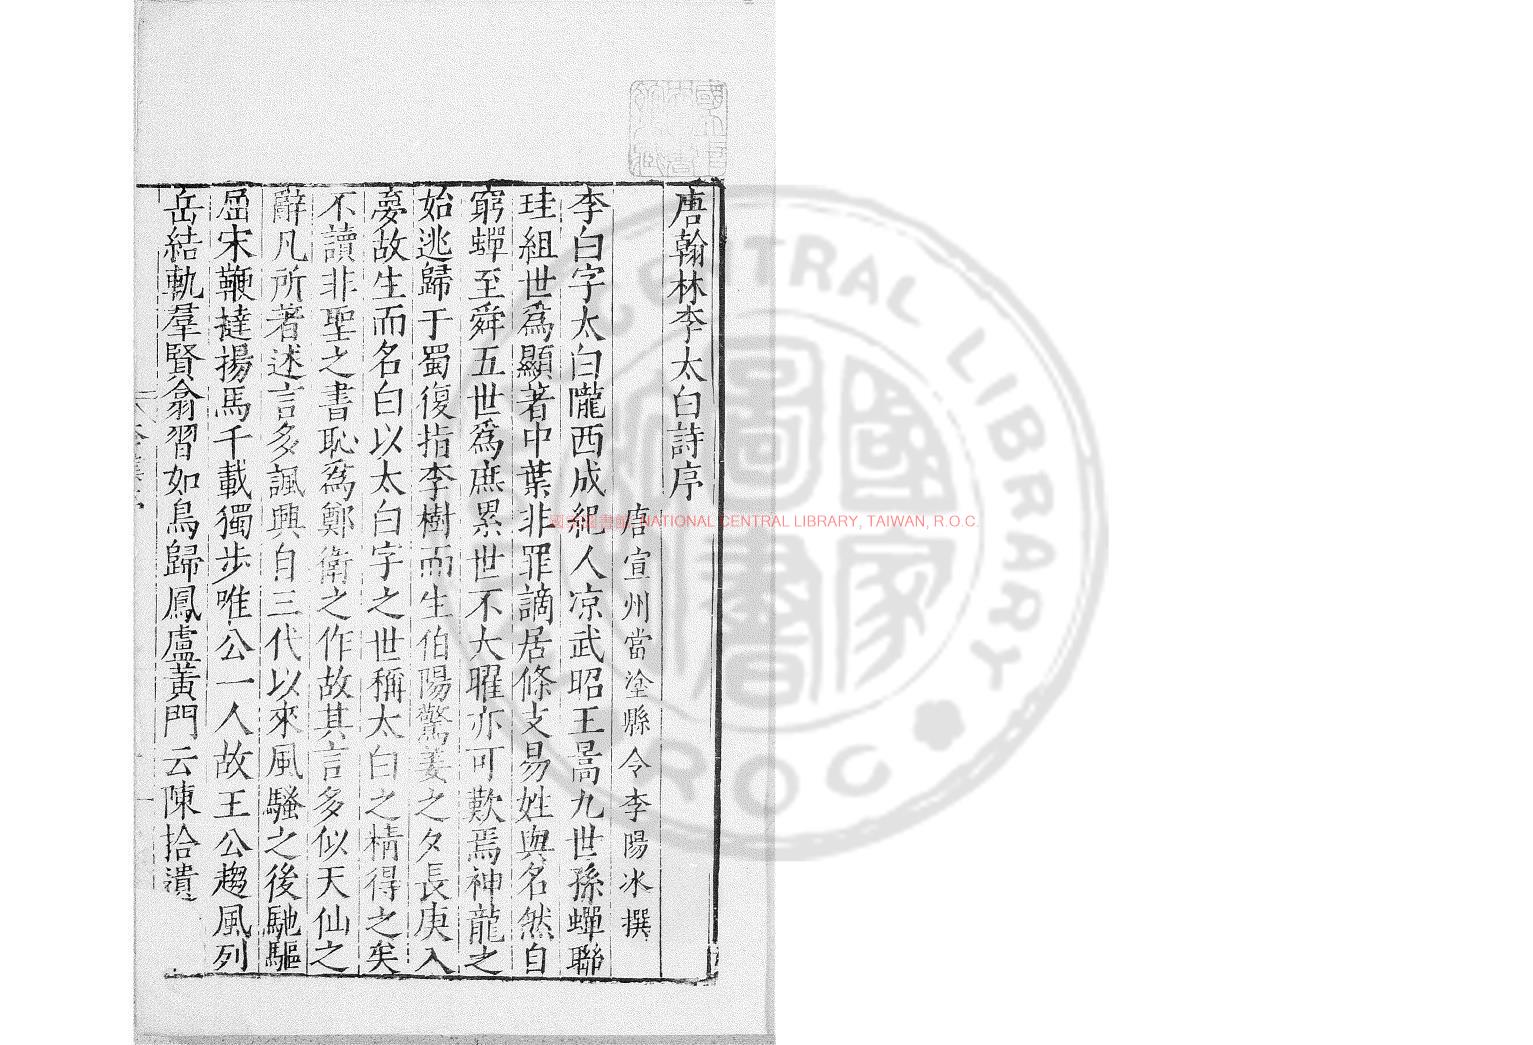 唐翰林李太白詩序
唐宣州當塗縣令李陽冰撰
李白字太白隴西成紀人凉武昭王暠九世孫蟬聯
珪組世爲顯著中葉非罪謫居條支易姓與名然自
窮蟬至舜五世爲庶累世不大曜亦可歎焉神龍之
始逃歸于蜀復指李樹而生伯陽驚姜之夕長庚入
夢故生而名白以太白字之世稱太白之精得之矣
不讀非聖之書恥爲鄭衛之作故其言多似天仙之
辭凡所著述言多諷興自三代以來風騷之後馳驅
屈宋鞭撻揚馬千載獨步唯公一人故王公趨風列
岳結軌羣賢翕習如鳥歸鳳盧黃門云陳拾遺
國家圖書館, NATIONAL CENTRAL LIBRARY, TAIWAN, R.O.C.
CENTRAL LIBRARY
ROC
國家圖書館